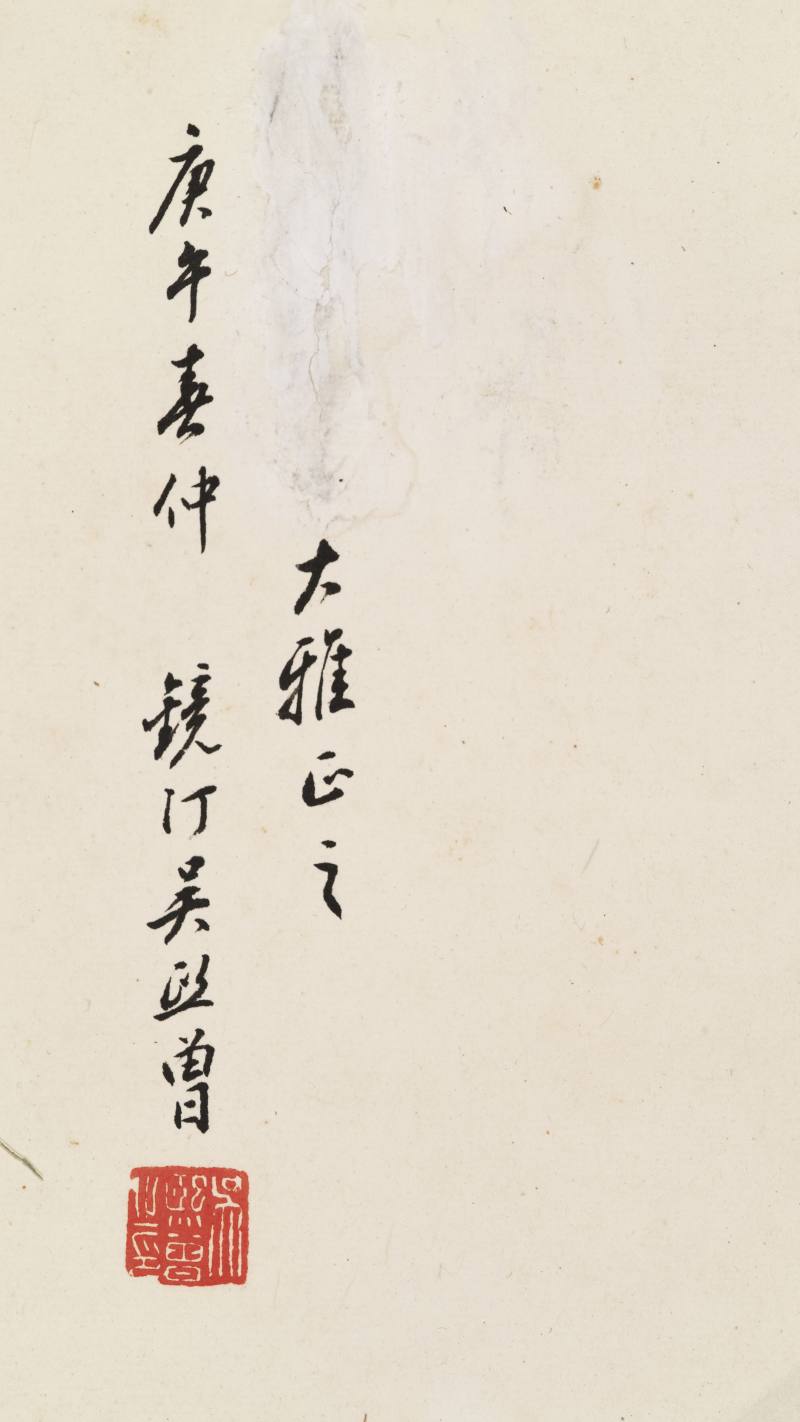 大雅正之
庚午春仲 鏡汀吴熙曾
吴熙曾印